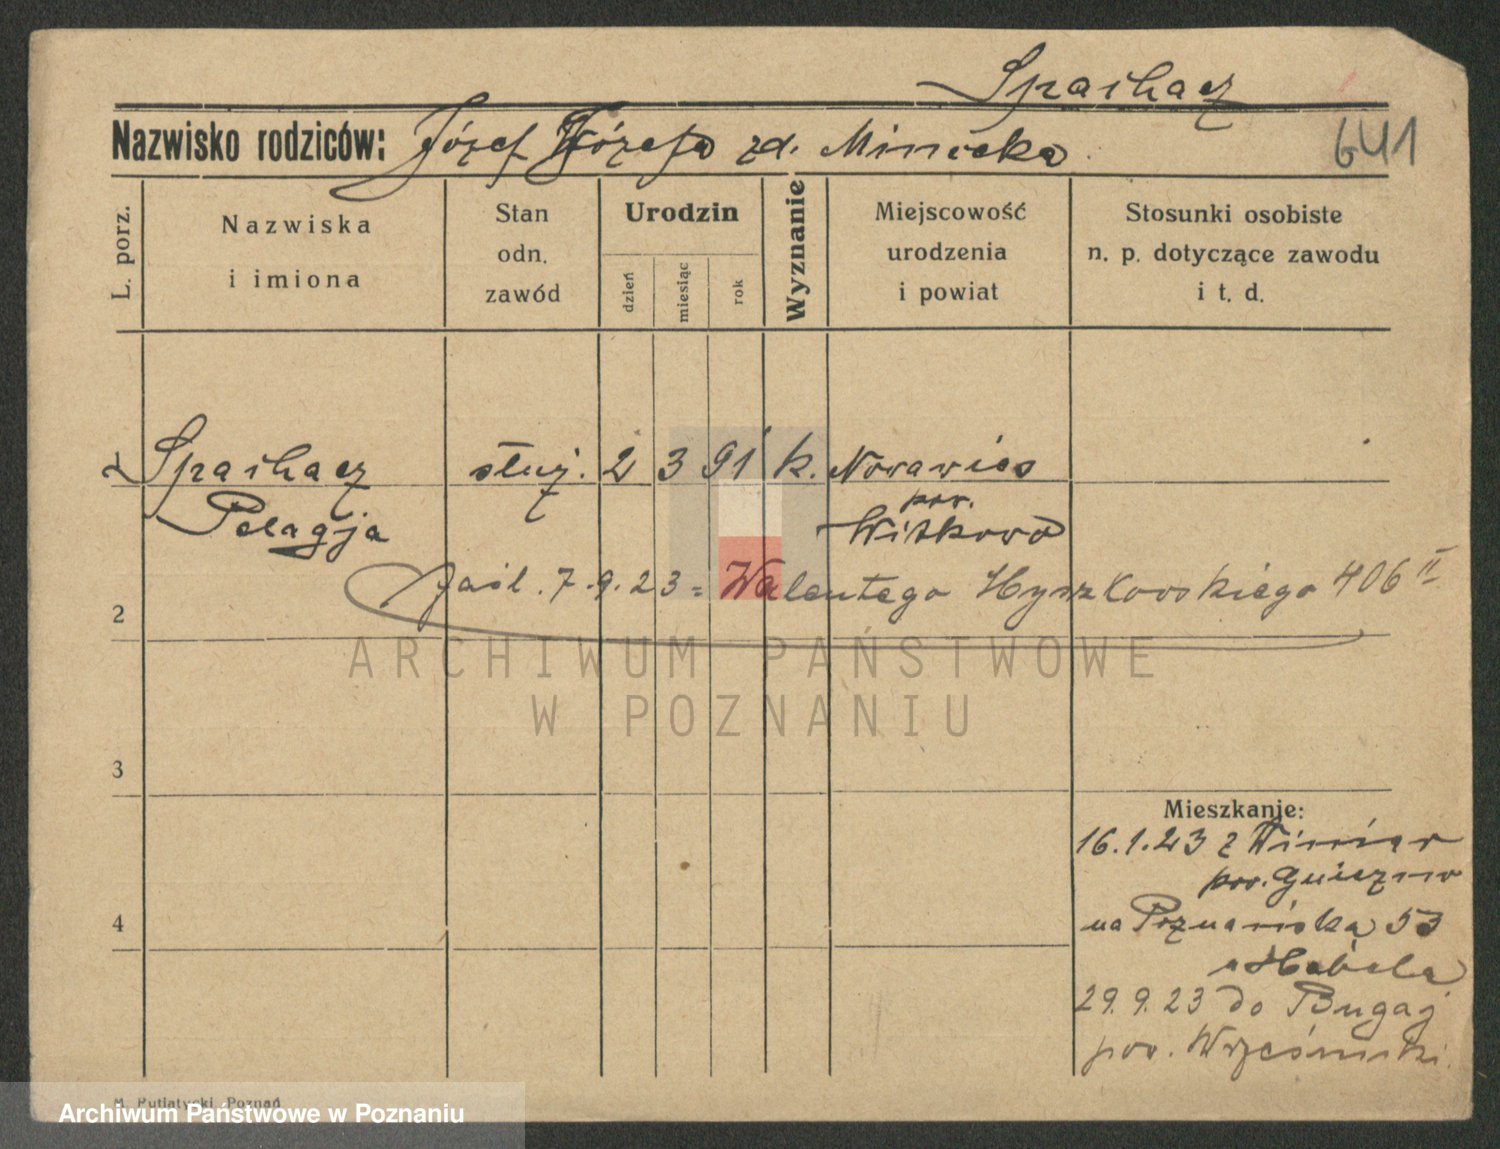 Spachacz
Nazwisko rodziców: Józef Józefa zd. Minicka
641
L. porz.
Nazwiska
i imiona
Stan
odn.
zawód
Urodzin
dzień
miesiąc
rok
Wyznanie
Miejscowość
urodzenia
i powiat
Stosunki osobiste
n. p. dotyczące zawodu
i t. d.
Spachacz służ. 2 3 91 k. Nowawieś
Pelagja pow.
Witkowo
zaśl. 7.9.23 = Walentego Hyszkowskiego 406 II
2
3
4
Mieszkanie:
16.1.23 z Winiar
pow. Gniezno
na Poznańską 53
29.9.23 do Bugaj
pow. Wrzesiński
ARCHIWUM PAŃSTWOWE
W POZNANIU
M. Putiatycki, Poznań
Archiwum Państwowe w Poznaniu